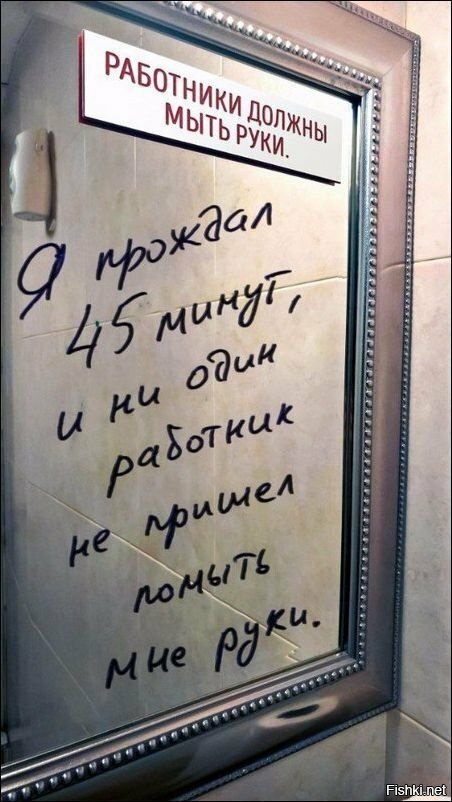 РАБОТНИКИ ДОЛЖНЫ
МЫТЬ РУКИ.
Я прождал
45 минут,
и ни один
работник
не пришел
помыть
мне руки.
Fishki.net